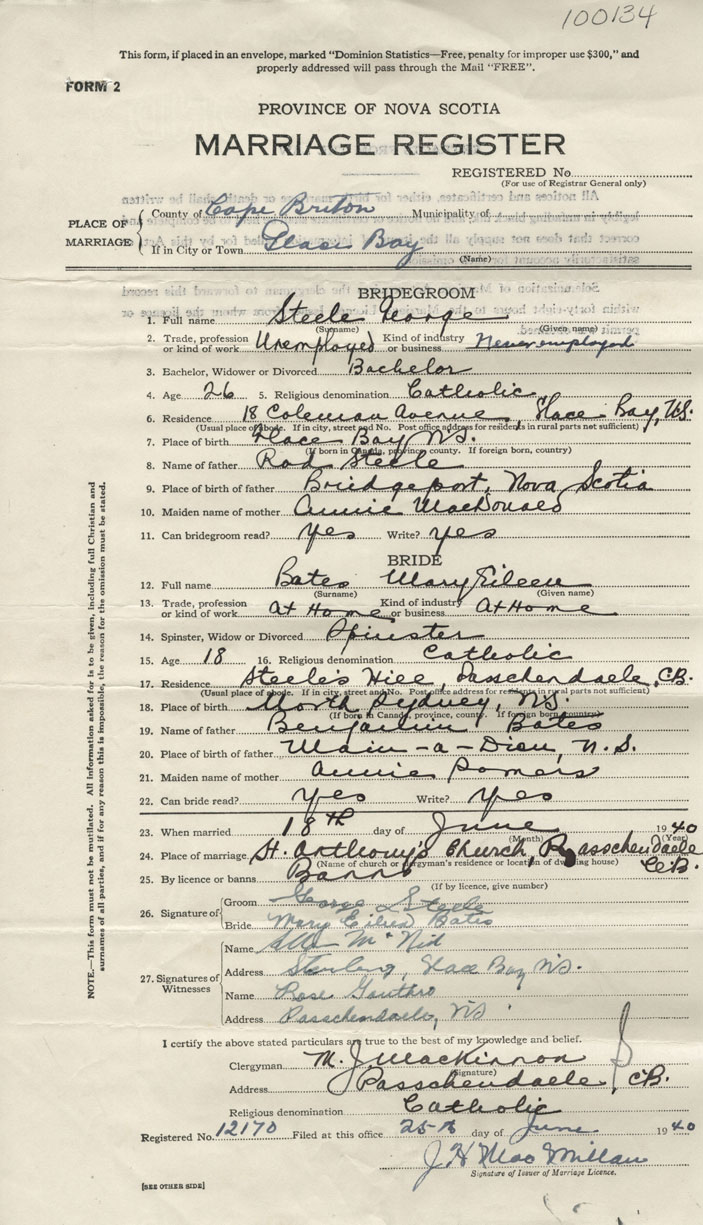 100134
This form, if placed in an envelope, marked "Dominion Statistics—Free, penalty for improper use $300," and
properly addressed will pass through the Mail "FREE".
FORM 2
PROVINCE OF NOVA SCOTIA
MARRIAGE REGISTER
REGISTERED No.
(For use of Registrar General only)
PLACE OF MARRIAGE
County of Cape Briton Municipality of
If in City or Town Glace Bay
(Name)
BRIDEGROOM
1. Full name Steele George
(Surname) (Given name)
2. Trade, profession or kind of work Unemployed Kind of industry or business Never employed
3. Bachelor, Widower or Divorced Bachelor
4. Age 26 5. Religious denomination Catholic
6. Residence 18 Coleman Avenue, Glace Bay, N.S.
(Usual place of abode. If in city, street and No. Post office address for residents in rural parts not sufficient)
7. Place of birth Glace Bay N.S.
(If born in Canada, province, county. If foreign born, country)
8. Name of father Rod Steele
9. Place of birth of father Bridgeport, Nova Scotia
10. Maiden name of mother Annie MacDonald
11. Can bridegroom read? yes Write? yes
BRIDE
12. Full name Bates Mary Eileen
(Surname) (Given name)
13. Trade, profession or kind of work At Home Kind of industry or business At Home
14. Spinster, Widow or Divorced Spinster
15. Age 18 16. Religious denomination Catholic
17. Residence Steele's Hill, Passchendaele, C.B.
(Usual place of abode. If in city, street and No. Post office address for residents in rural parts not sufficient)
18. Place of birth North Sydney, N.S.
(If born in Canada, province, county. If foreign born, country)
19. Name of father Benjamin Bates
20. Place of birth of father Main-a-Dieu, N.S.
21. Maiden name of mother Annie Somers
22. Can bride read? yes Write? yes
23. When married 18th day of June 1940
(Month) (Year)
24. Place of marriage St. Anthony's Church, Passchendaele C.B.
(Name of church or clergyman's residence or location of dwelling house)
25. By licence or banns Banns
(If by licence, give number)
26. Signature of
Groom George Steele
Bride Mary Eileen Bates
27. Signatures of Witnesses
Name
Address Sterling, Glace Bay N.S.
Name Rose Gouthro
Address Passchendaele, N.S.
I certify the above stated particulars are true to the best of my knowledge and belief.
Clergyman M. J. MacKinnon
(Signature)
Address Passchendaele, C.B.
Religious denomination Catholic
Registered No. 12170 Filed at this office 25th day of June 1940
J H MacMillan
Signature of Issuer of Marriage Licence.
[SEE OTHER SIDE]
NOTE.—This form must not be mutilated. All information asked for is to be given, including full Christian and
surnames of all parties, and if for any reason this is impossible, the reason for the omission must be stated.